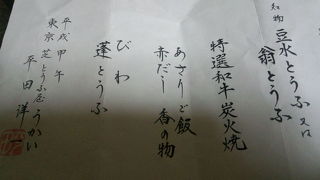 和物 豆水とうふ 又は
翁とうふ
特選和牛炭火焼
あさりご飯
赤だし 香の物
びわ
蓬とうふ
平成甲午
東京 芝とうふ屋うかい
平田洋一